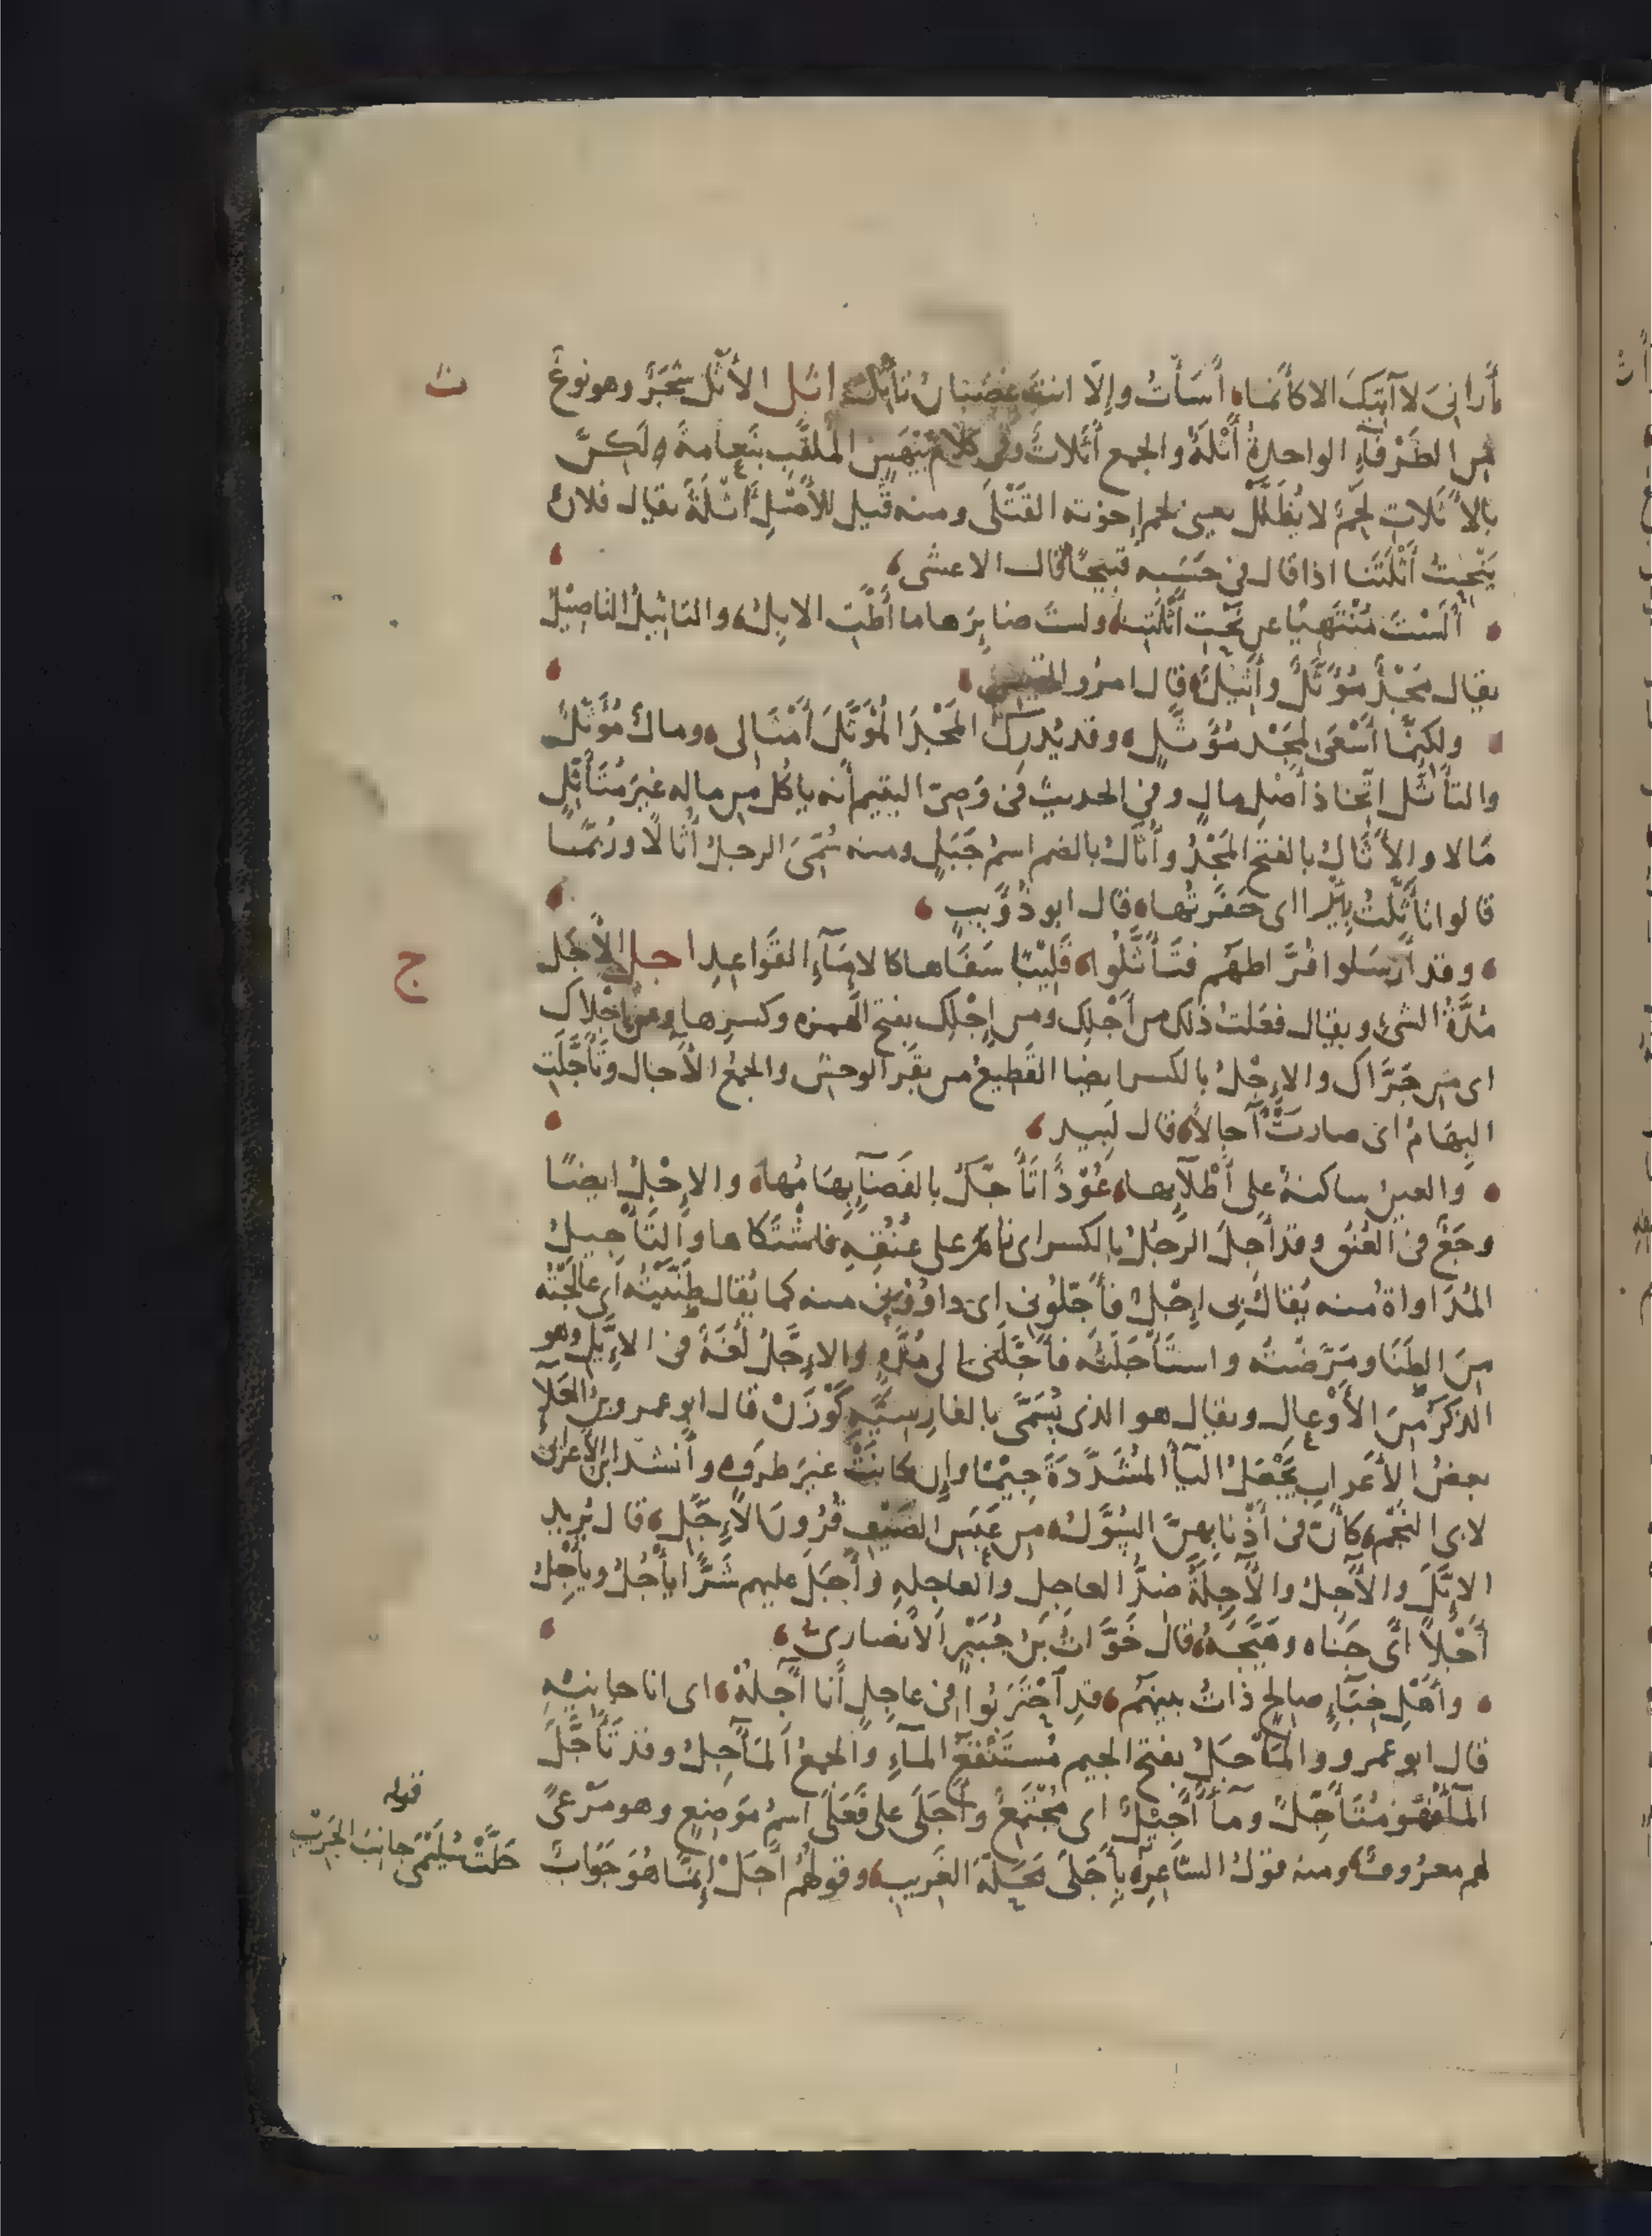 أراني لا آتيك الا كأنما أسأت وإلا انت غضبان تأتل اثل الأثل شجر وهو نوع
ث
من الطرفآء الواحدة أثلة والجمع أثلات وفي كلام بيهس الملقب بنعامة ولكن
بالأثلات لحم لا يظلل يعنى لحم إخوته القتلى ومنه قيل للأصل أثلة يقال فلان
ينحت أثلتنا اذا قال في حسبه قبيحا قال الاعشى
ألست منتهيا عن نحت أثلتنا ولست ضايرها ما أطت الابل والتاثيل التاصيل
يقال مجد مؤثل وأثيل قال امرؤ القيس
ولكنما أسعى لمجد مؤثل وقد يدرك المجد المؤثل أمثالى ومال مؤثل
والتأثل اتخاذ أصل مال وفي الحديث في وصي اليتيم أنه ياكل من ماله غير متأثل
مالا والأثال بالفتح المجد وأثال بالضم اسم جبل ومنه سمى الرجل أثالا وربما
قالوا تأثلت بئرا اى حفرتها قال ابو ذؤيب
وقد أرسلوا فراطهم فتأثلوا قليبا سفاها كالامآء القواعد اجل الأجل
ج
مدة الشئ ويقال فعلت ذلك من أجلك ومن إجلك بفتح الهمزه وكسرها ومن اجلاك
اى من جراك والإجل بالكسر ايضا القطيع من بقر الوحش والجمع الآجال وتأجلت
البهام اى صارت آجالا قال لبيد
والعين ساكنة على أطلآيها عوذا تأجل بالفضآ بهامها والإجل ايضا
وجع في العنق وقد أجل الرجل بالكسر اى نام على عنقه فاشتكاها والتأجيل
المداواة منه يقال بى إجل فأجلونى اى داوونى منه كما يقال طنيته اى عالجته
من الطنا ومرضته واستأجلته فأجلنى الى مدة والإجل لغة في الإيل وهو
الذكر من الأوعال ويقال هو الذى يسمى بالفارسية گوزن قال ابو عمرو بن العلآ
بعض الأعراب يجعل اليآ المشددة جيما وإن كانت غير طرف وأنشد ابن الأعرابى
لابى النجم كأن في أذنابهن الشول من عبس الصيف قرون الإجل قال يريد
الايل والآجل والآجلة ضد العاجل والعاجله وأجل عليهم شرا يأجل ويأجل
أجلا اى جناه وهيجه قال خوات بن جبير الأنصارى
وأهل خبآء صالح ذات بينهم قد احتربوا في عاجل أنا آجله اى انا جانيه
قال ابو عمرو والمأجل بفتح الجيم مستنقع المآء والجمع المآجل وقد تأجل
المآ فهو متأجل ومآ أجيل اى مجتمع وأجلى على فعلى اسم موضع وهو مرعى
لهم معروف ومنه قول الشاعر بأجلى محلة الغريب وقولهم أجل إنما هو جواب
قوله
حلت سليمى جانب الجريب